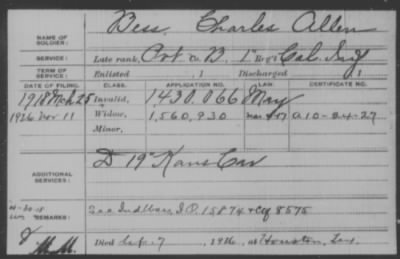 NAME OF SOLDIER: Bess, Charles Allen
SERVICE: Late rank, Pvt Co. B, 1" Reg't Cal. Inf
TERM OF SERVICE: Enlisted , 1 Discharged , 1
DATE OF FILING. CLASS. APPLICATION NO. LAW. CERTIFICATE NO.
1918 Mch 25 Invalid, 1430.066 May
1926 Nov 11 Widow, 1,560,930 A10-24-27
Minor,
ADDITIONAL SERVICES: D 19" Kans Cav
REMARKS: See Ind Wars, I.O. 15874 & Ctf 8575
M.M. Died 7, 1926, at Houston, Tex.